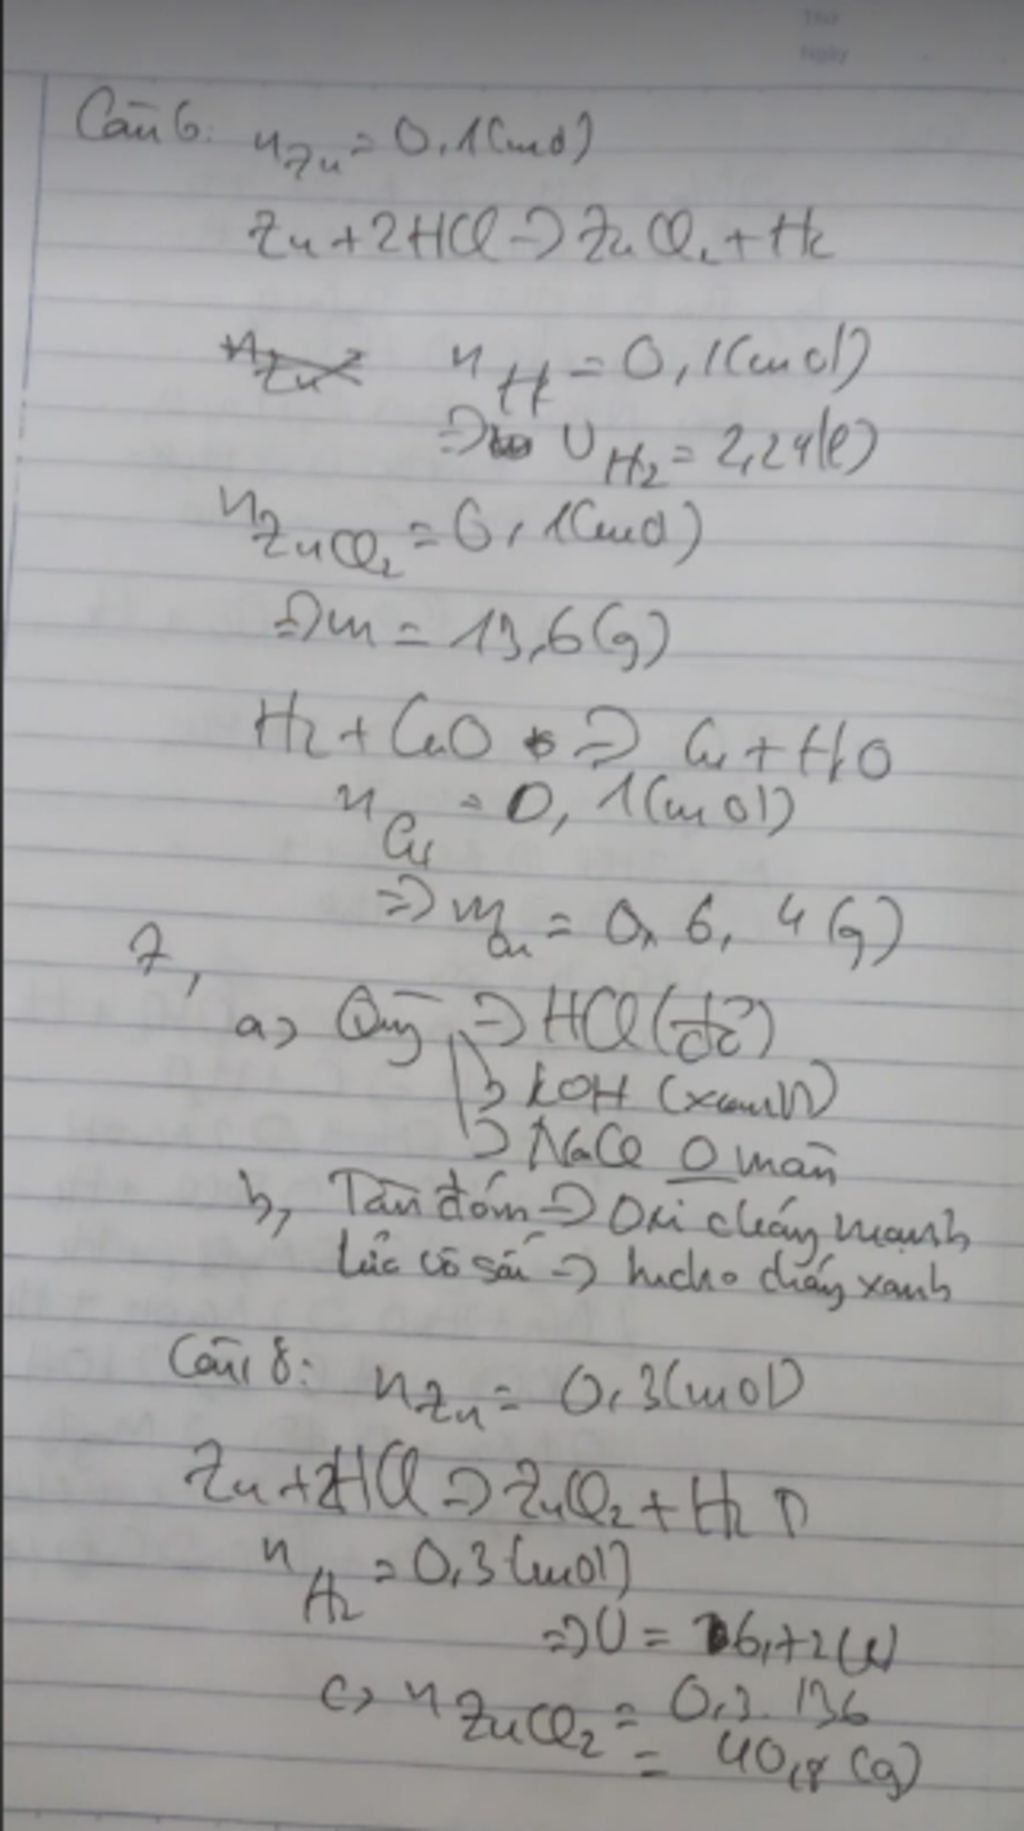 Thứ
Ngày
Câu 6: n Zn = 0,1(mol)
Zn + 2HCl => ZnCl2 + H2
n Zn n H = 0,1(mol)
=> V H2 = 2,24(l)
n ZnCl2 = 0,1(mol)
=> m = 13,6(g)
H2 + CuO => Cu + H2O
n Cu = 0,1(mol)
=> m Cu = 6,4(g)
7,
a, Quỳ => HCl (đỏ)
-> KOH (xanh)
-> NaCl O màu
b, Tàn đóm => Oxi cháy mạnh
=> hidro cháy xanh
Câu 8: n Zn = 0,3(mol)
Zn + 2HCl => ZnCl2 + H2 ↑
n H2 = 0,3(mol)
=> V = 6,72(l)
c, n ZnCl2 = 0,3.136
= 40,8(g)